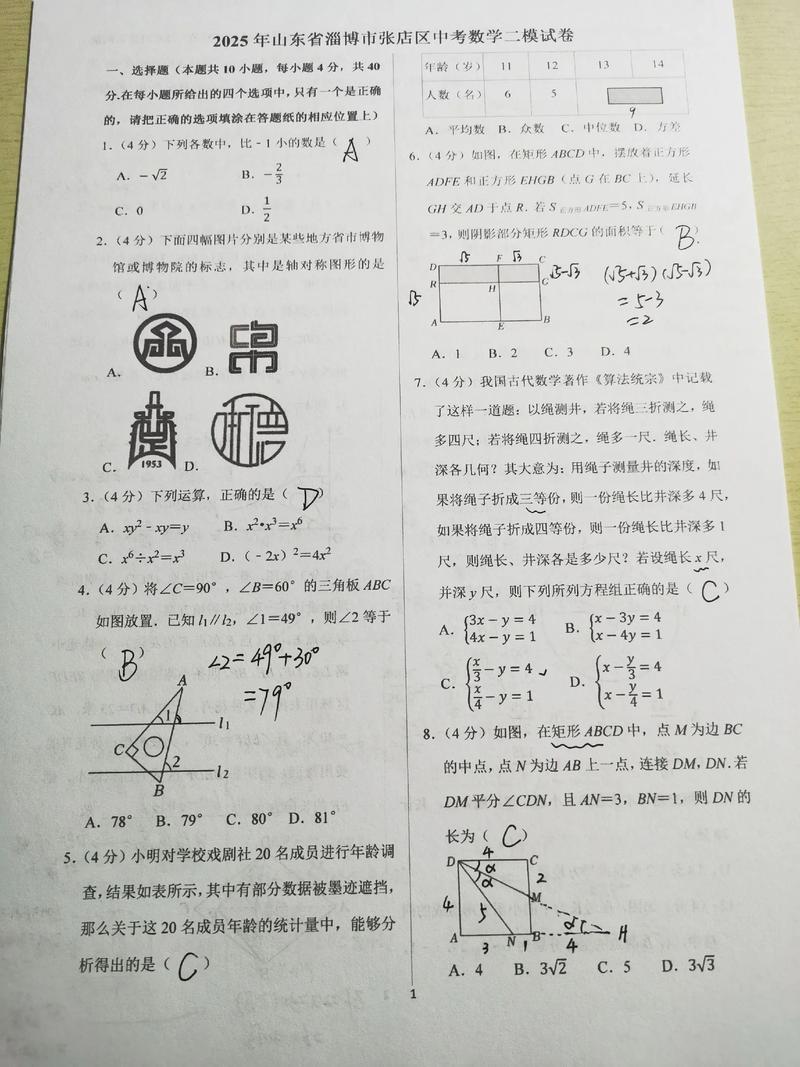 2025 年山东省淄博市张店区中考数学二模试卷
一、选择题（本题共 10 小题，每小题 4 分，共 40
分.在每小题所给出的四个选项中，只有一个是正确
的，请把正确的选项填涂在答题纸的相应位置上）
1.（4 分）下列各数中，比﹣1 小的数是（ A ）
A．−√2 B．−2/3
C．0 D．1/2
2.（4 分）下面四幅图片分别是某些地方省市博物
馆或博物院的标志，其中是轴对称图形的是
（ A ）
A． B．
1953
C． D．
3.（4 分）下列运算，正确的是（ D ）
A．xy²﹣xy＝y B．x²•x³＝x⁶
C．x⁶÷x²＝x³ D．（﹣2x）²＝4x²
4.（4 分）将∠C＝90°，∠B＝60°的三角板 ABC
如图放置．已知 l₁∥l₂，∠1＝49°，则∠2 等于
（ B ） ∠2＝49°+30°
＝79°
A
1 l₁
C
2 l₂
B
A．78° B．79° C．80° D．81°
5.（4 分）小明对学校戏剧社 20 名成员进行年龄调
查，结果如表所示，其中有部分数据被墨迹遮挡，
那么关于这 20 名成员年龄的统计量中，能够分
析得出的是（ C ）
年龄（岁） 11 12 13 14
人数（名） 6 5
9
A．平均数 B．众数 C．中位数 D．方差
6.（4 分）如图，在矩形 ABCD 中，摆放着正方形
ADFE 和正方形 EHGB（点 G 在 BC 上），延长
GH 交 AD 于点 R．若 S正方形ADFE＝5，S正方形EHGB
＝3，则阴影部分矩形 RDCG 的面积等于（ B ）
√5 √3
D F C
R H G √5-√3
√5
A E B
(√5+√3)(√5-√3)
＝5-3
＝2
A．1 B．2 C．3 D．4
7.（4 分）我国古代数学著作《算法统宗》中记载
了这样一道题：以绳测井，若将绳三折测之，绳
多四尺；若将绳四折测之，绳多一尺．绳长、井
深各几何？其大意为：用绳子测量井的深度，如
果将绳子折成三等份，则一份绳长比井深多 4 尺，
如果将绳子折成四等份，则一份绳长比井深多 1
尺，则绳长、井深各是多少尺？若设绳长 x 尺，
并深 y 尺，则下列所列方程组正确的是（ C ）
A．{3x − y = 4 4x − y = 1 B．{x − 3y = 4 x − 4y = 1
C．{x/3 − y = 4 x/4 − y = 1 D．{x − y/3 = 4 x − y/4 = 1
8.（4 分）如图，在矩形 ABCD 中，点 M 为边 BC
的中点，点 N 为边 AB 上一点，连接 DM，DN．若
DM 平分∠CDN，且 AN＝3，BN＝1，则 DN 的
长为（ C ）
4
D C
α
α 2
M
4 5 α
A N B H
3 1 4
A．4 B．3√2 C．5 D．3√3
1